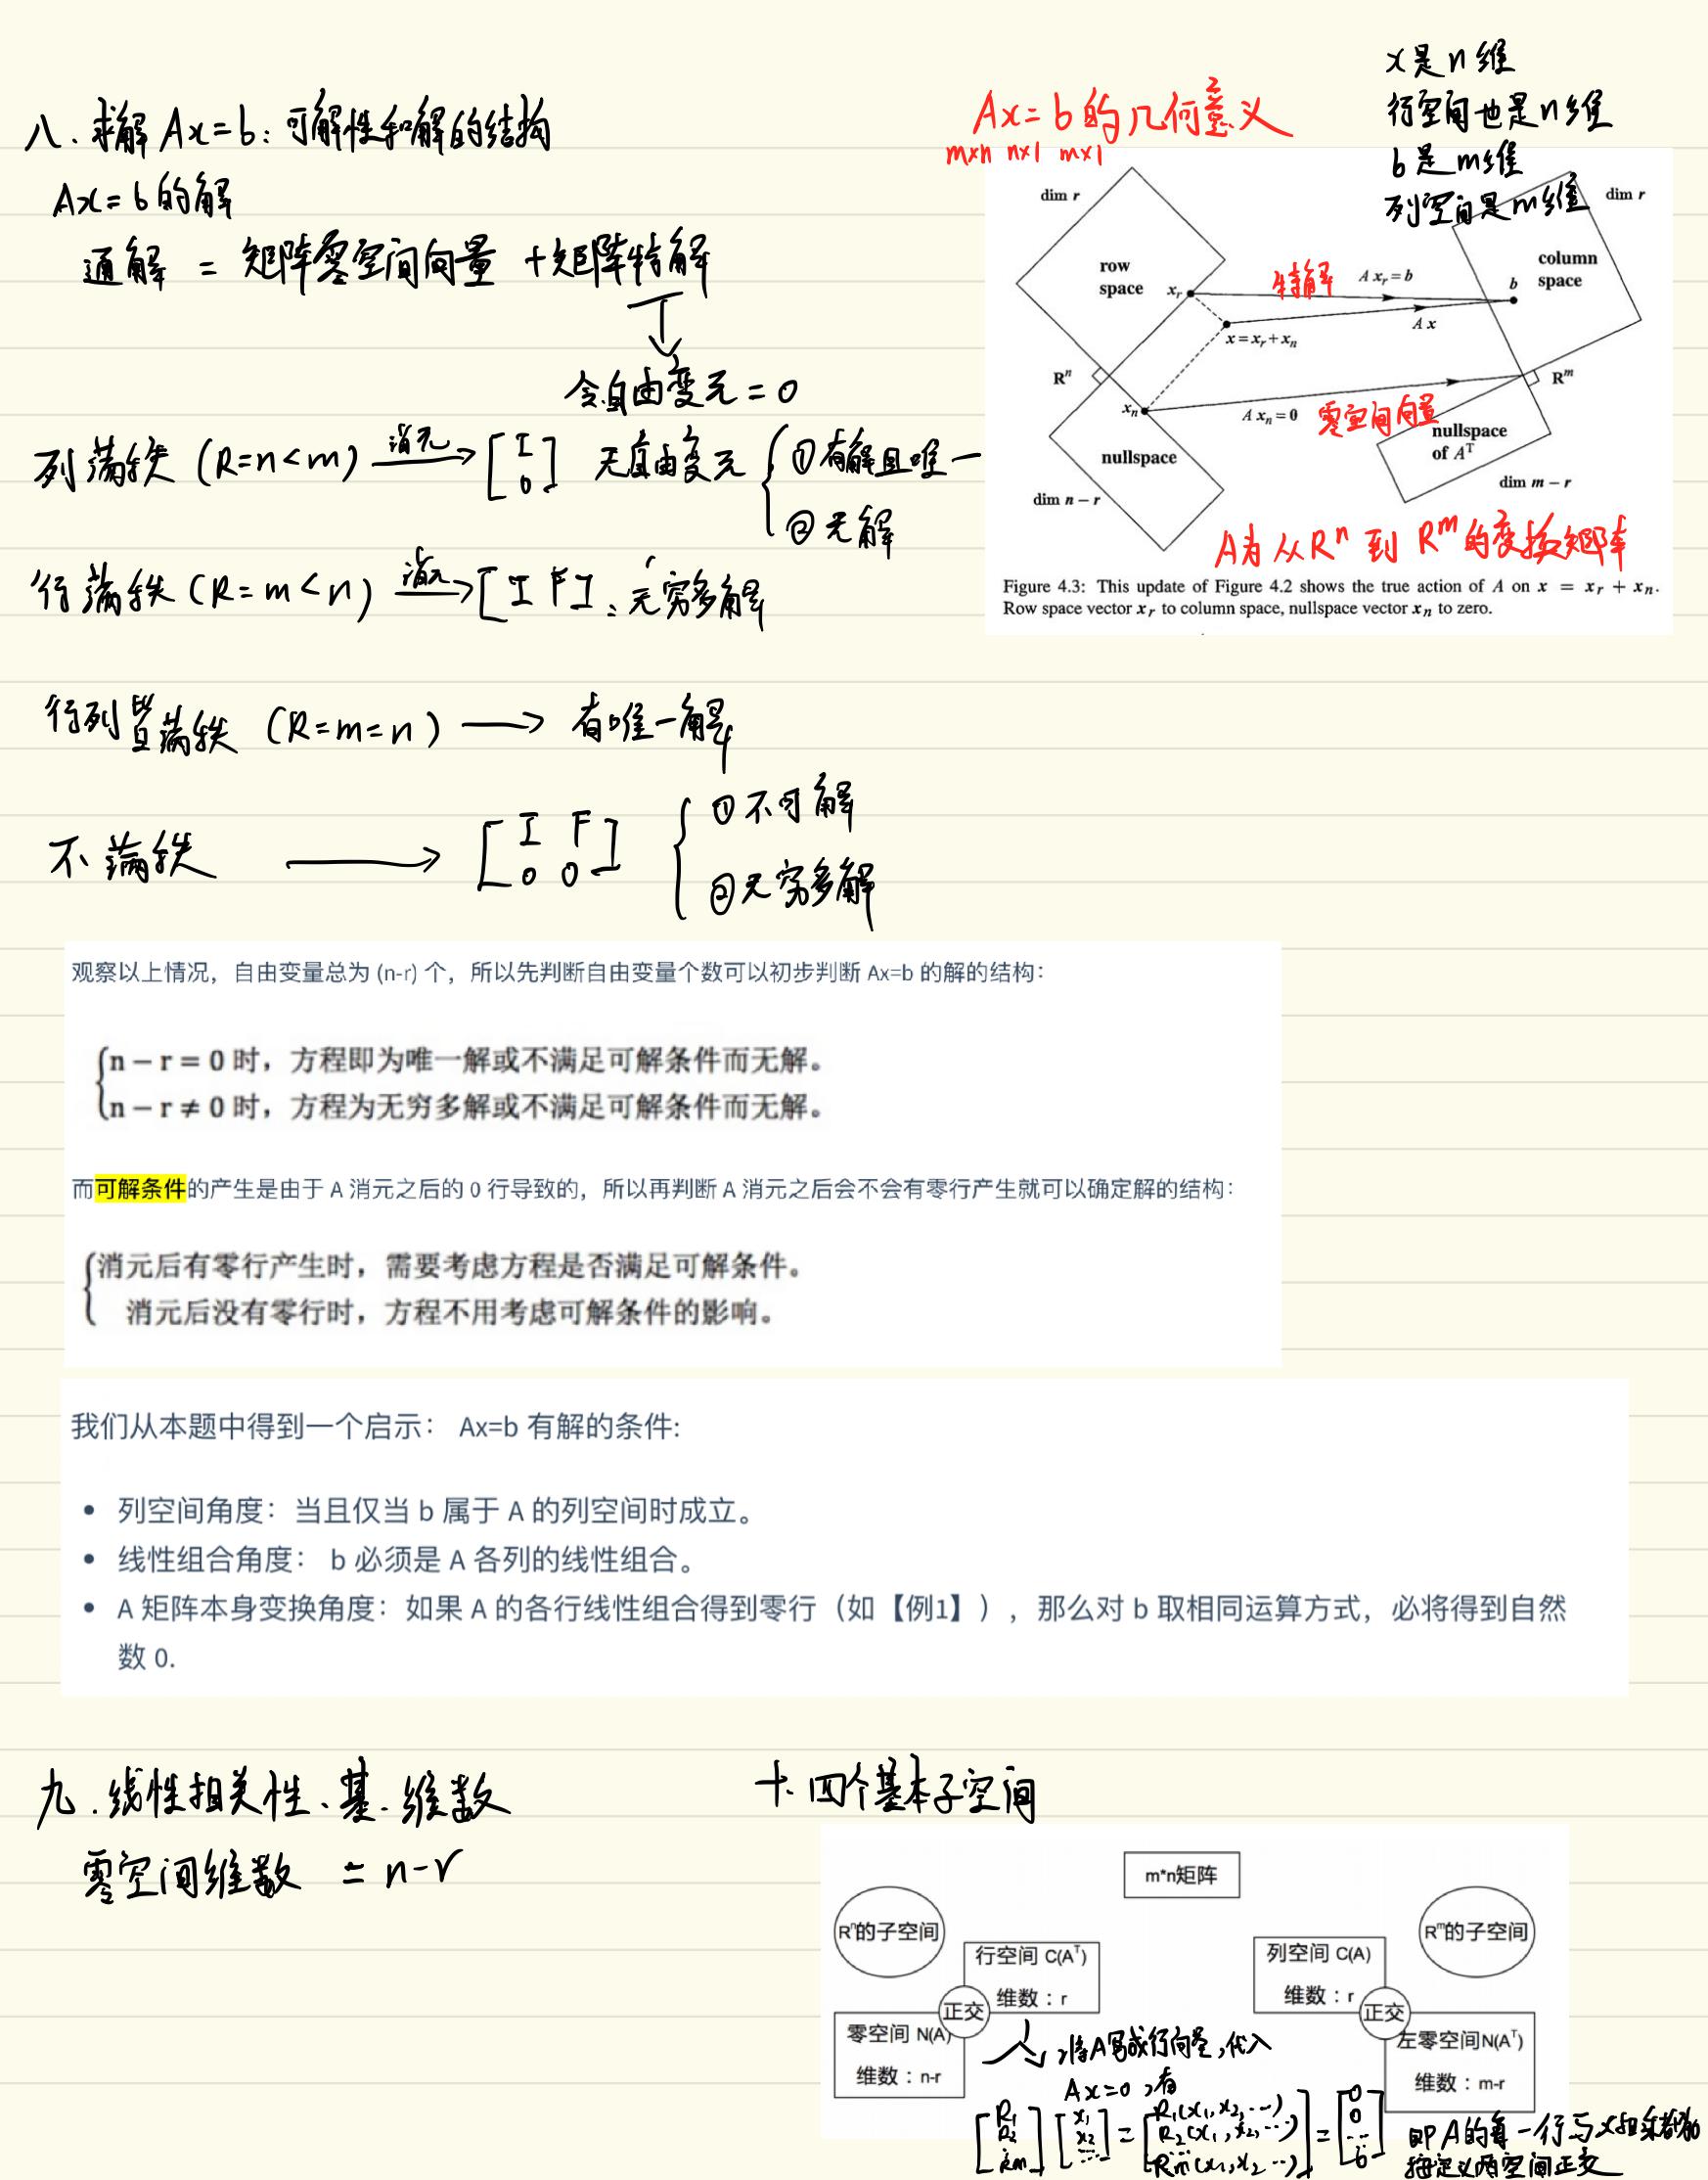 八.求解 Ax=b:可解性和解的结构
Ax=b的解
通解 = 矩阵零空间向量 +矩阵特解
令自由变元=0
列满秩 (R=n<m) 消元 [I 0] 无自由变元 ①有解且唯一
②无解
行满秩 (R=m<n) 消元 [I F]: 无穷多解
行列皆满秩 (R=m=n) → 有唯一解
不满秩 → [I F 0 0] ①不可解
②无穷多解
Ax=b的几何意义
m×n n×1 m×1
x是n维
行空间也是n维
b是m维
列空间是m维
dim r
dim r
row space
column space
xr
特解
A xr = b
b
A x
x = xr + xn
Rⁿ
Rᵐ
xn
A xn = 0
零空间向量
nullspace
nullspace of Aᵀ
dim n − r
dim m − r
A为从Rⁿ到Rᵐ的变换矩阵
Figure 4.3: This update of Figure 4.2 shows the true action of A on x = xr + xn.
Row space vector xr to column space, nullspace vector xn to zero.
观察以上情况，自由变量总为 (n-r) 个，所以先判断自由变量个数可以初步判断 Ax=b 的解的结构：
n − r = 0 时，方程即为唯一解或不满足可解条件而无解。
n − r ≠ 0 时，方程为无穷多解或不满足可解条件而无解。
而可解条件的产生是由于 A 消元之后的 0 行导致的，所以再判断 A 消元之后会不会有零行产生就可以确定解的结构：
消元后有零行产生时，需要考虑方程是否满足可解条件。
消元后没有零行时，方程不用考虑可解条件的影响。
我们从本题中得到一个启示： Ax=b 有解的条件:
• 列空间角度：当且仅当 b 属于 A 的列空间时成立。
• 线性组合角度： b 必须是 A 各列的线性组合。
• A 矩阵本身变换角度：如果 A 的各行线性组合得到零行（如【例1】），那么对 b 取相同运算方式，必将得到自然
数 0.
九.线性相关性、基.维数
零空间维数 = n-r
十.四个基本子空间
m*n矩阵
Rⁿ的子空间
Rᵐ的子空间
行空间 C(Aᵀ)
维数：r
列空间 C(A)
维数：r
正交
正交
零空间 N(A)
维数：n-r
左零空间N(Aᵀ)
维数：m-r
将A写成行向量,代入
Ax=0,有
[R1 R2 ... Rm] [x1 x2 ...] = [R1(x1,x2,...) R2(x1,x2,...) Rm(x1,x2...)] = [0 0 ... 0]
即A的每一行与x相乘都为0
按定义两空间正交